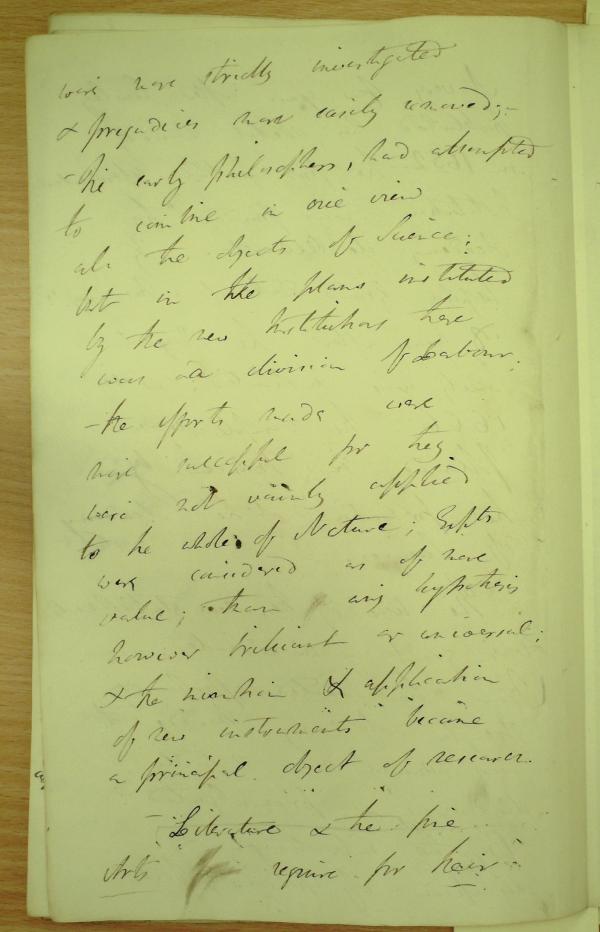 were more strictly investigated
& prejudices more easily removed;-
- The early philosophers, had attempted
to combine in one view
all the objects of Science;
but in the plans instituted
by the new Institutions there
was a division of Labour;
- the efforts made were
more successful for they
were not vainly applied
to the whole of Nature; Expts
were considered as of more
value; than any hypothesis
however brilliant or universal;
& the invention & application
of new instruments became
a principal object of research.
- Literature & the fine
Arts require for their